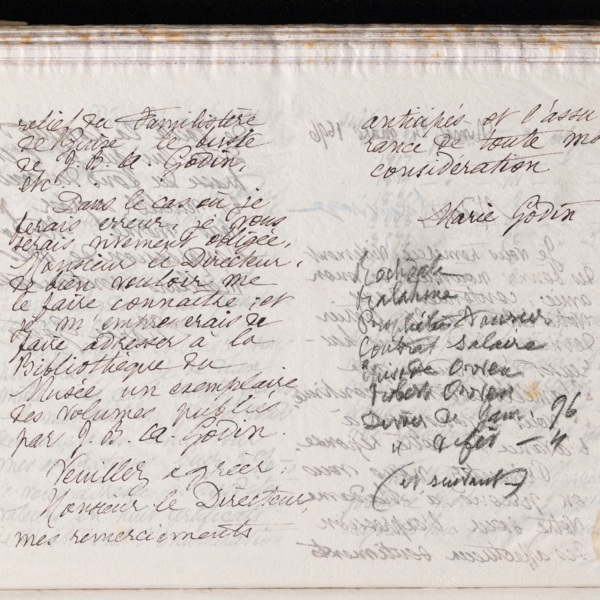 relief du Familistère
de Guise le buste
de J. B. A. Godin,
etc.
Dans le cas où je
ferais erreur, je vous
serais vivement obligée,
Monsieur le Directeur,
de bien vouloir me
le faire connaître ; et
je m'empresserais de
faire adresser à la
Bibliothèque du
Musée un exemplaire
des volumes publiés
par J. B. A. Godin.
Veuillez agréer,
Monsieur le Directeur,
mes remerciements
anticipés et l'assu
rance de toute ma
considération
Marie Godin
Rochdale
Contrat Salaire
Robert Owen
Devoir de Janv 96
" " fév – "
(et suivant)